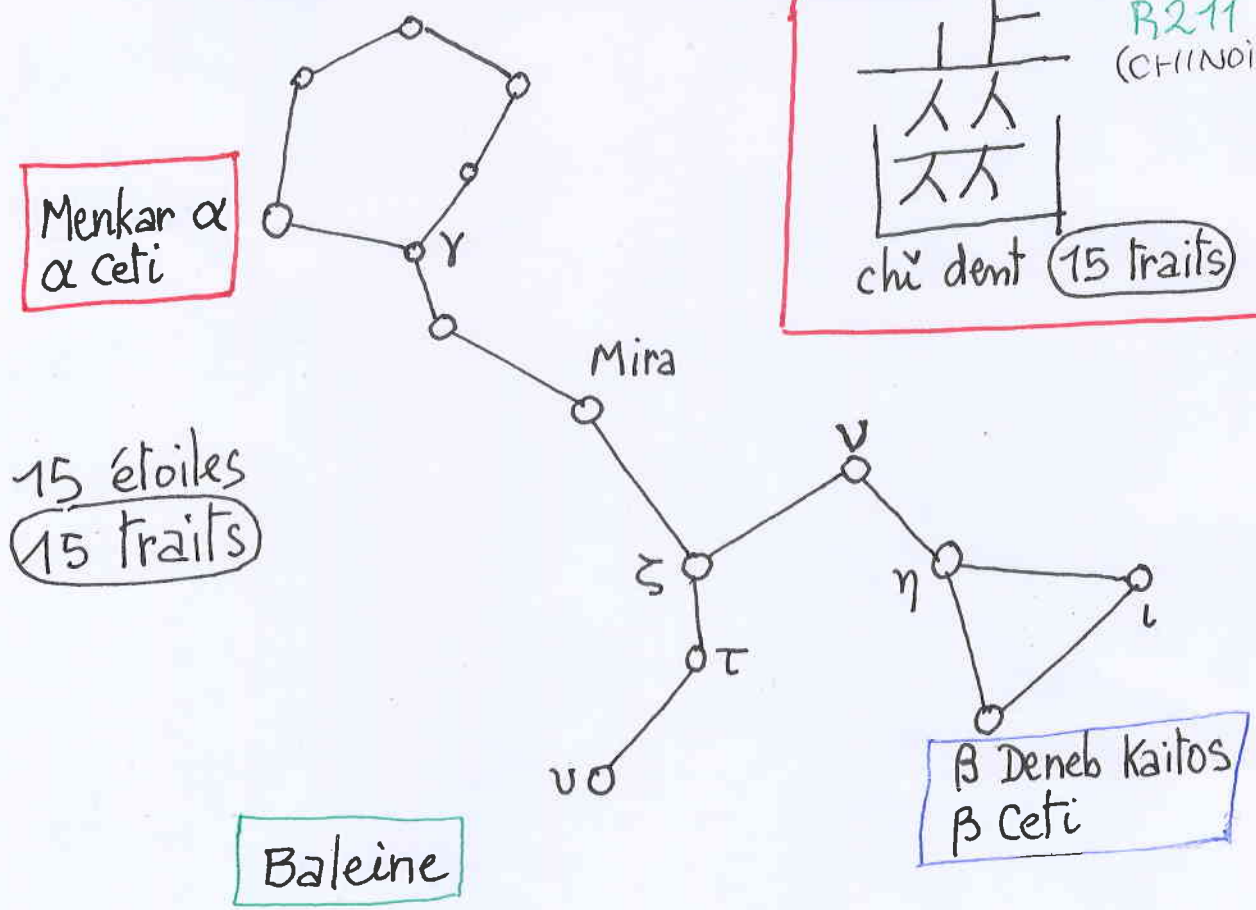 R211
(CHINOI
齒
chǐ dent 15 traits
Menkar α
α Ceti
γ
Mira
15 étoiles
15 traits
ν
ζ
η
ι
τ
υ
β Deneb Kaitos
β Ceti
Baleine